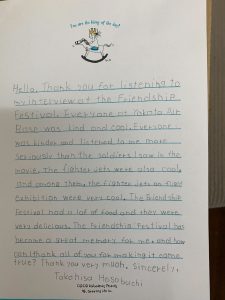 You are the king of the day!
Hello, Thank you for listening to
my interview at the Friendship
Festival. Everyone at Yokota Air
Base was kind and cool. Everyone
was kinder and listened to me more
seriously than the soldiers I saw in the
movie. The fighter jets were also cool,
and among them, the fighter jets on
exhibition were very cool. The Friendship
Festival had a lot of food and they were
very delicious. The Friendship Festival has
become a great memory for me and how
can I thank all of you for making it come
true? Thank you very much. Sincerely,
Takahisa Hosobuchi